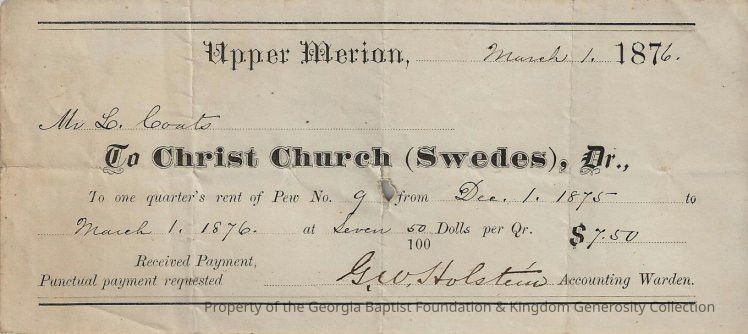 Upper Merion, March 1. 1876.
Mr L. Coats
To Christ Church (Swedes), Dr.,
To one quarter's rent of Pew No. 9 from Dec. 1. 1875 to
March 1. 1876. at Seven 50/100 Dolls per Qr. $7.50
Received Payment,
Punctual payment requested G. W. Holstein Accounting Warden.
Property of the Georgia Baptist Foundation & Kingdom Generosity Collection